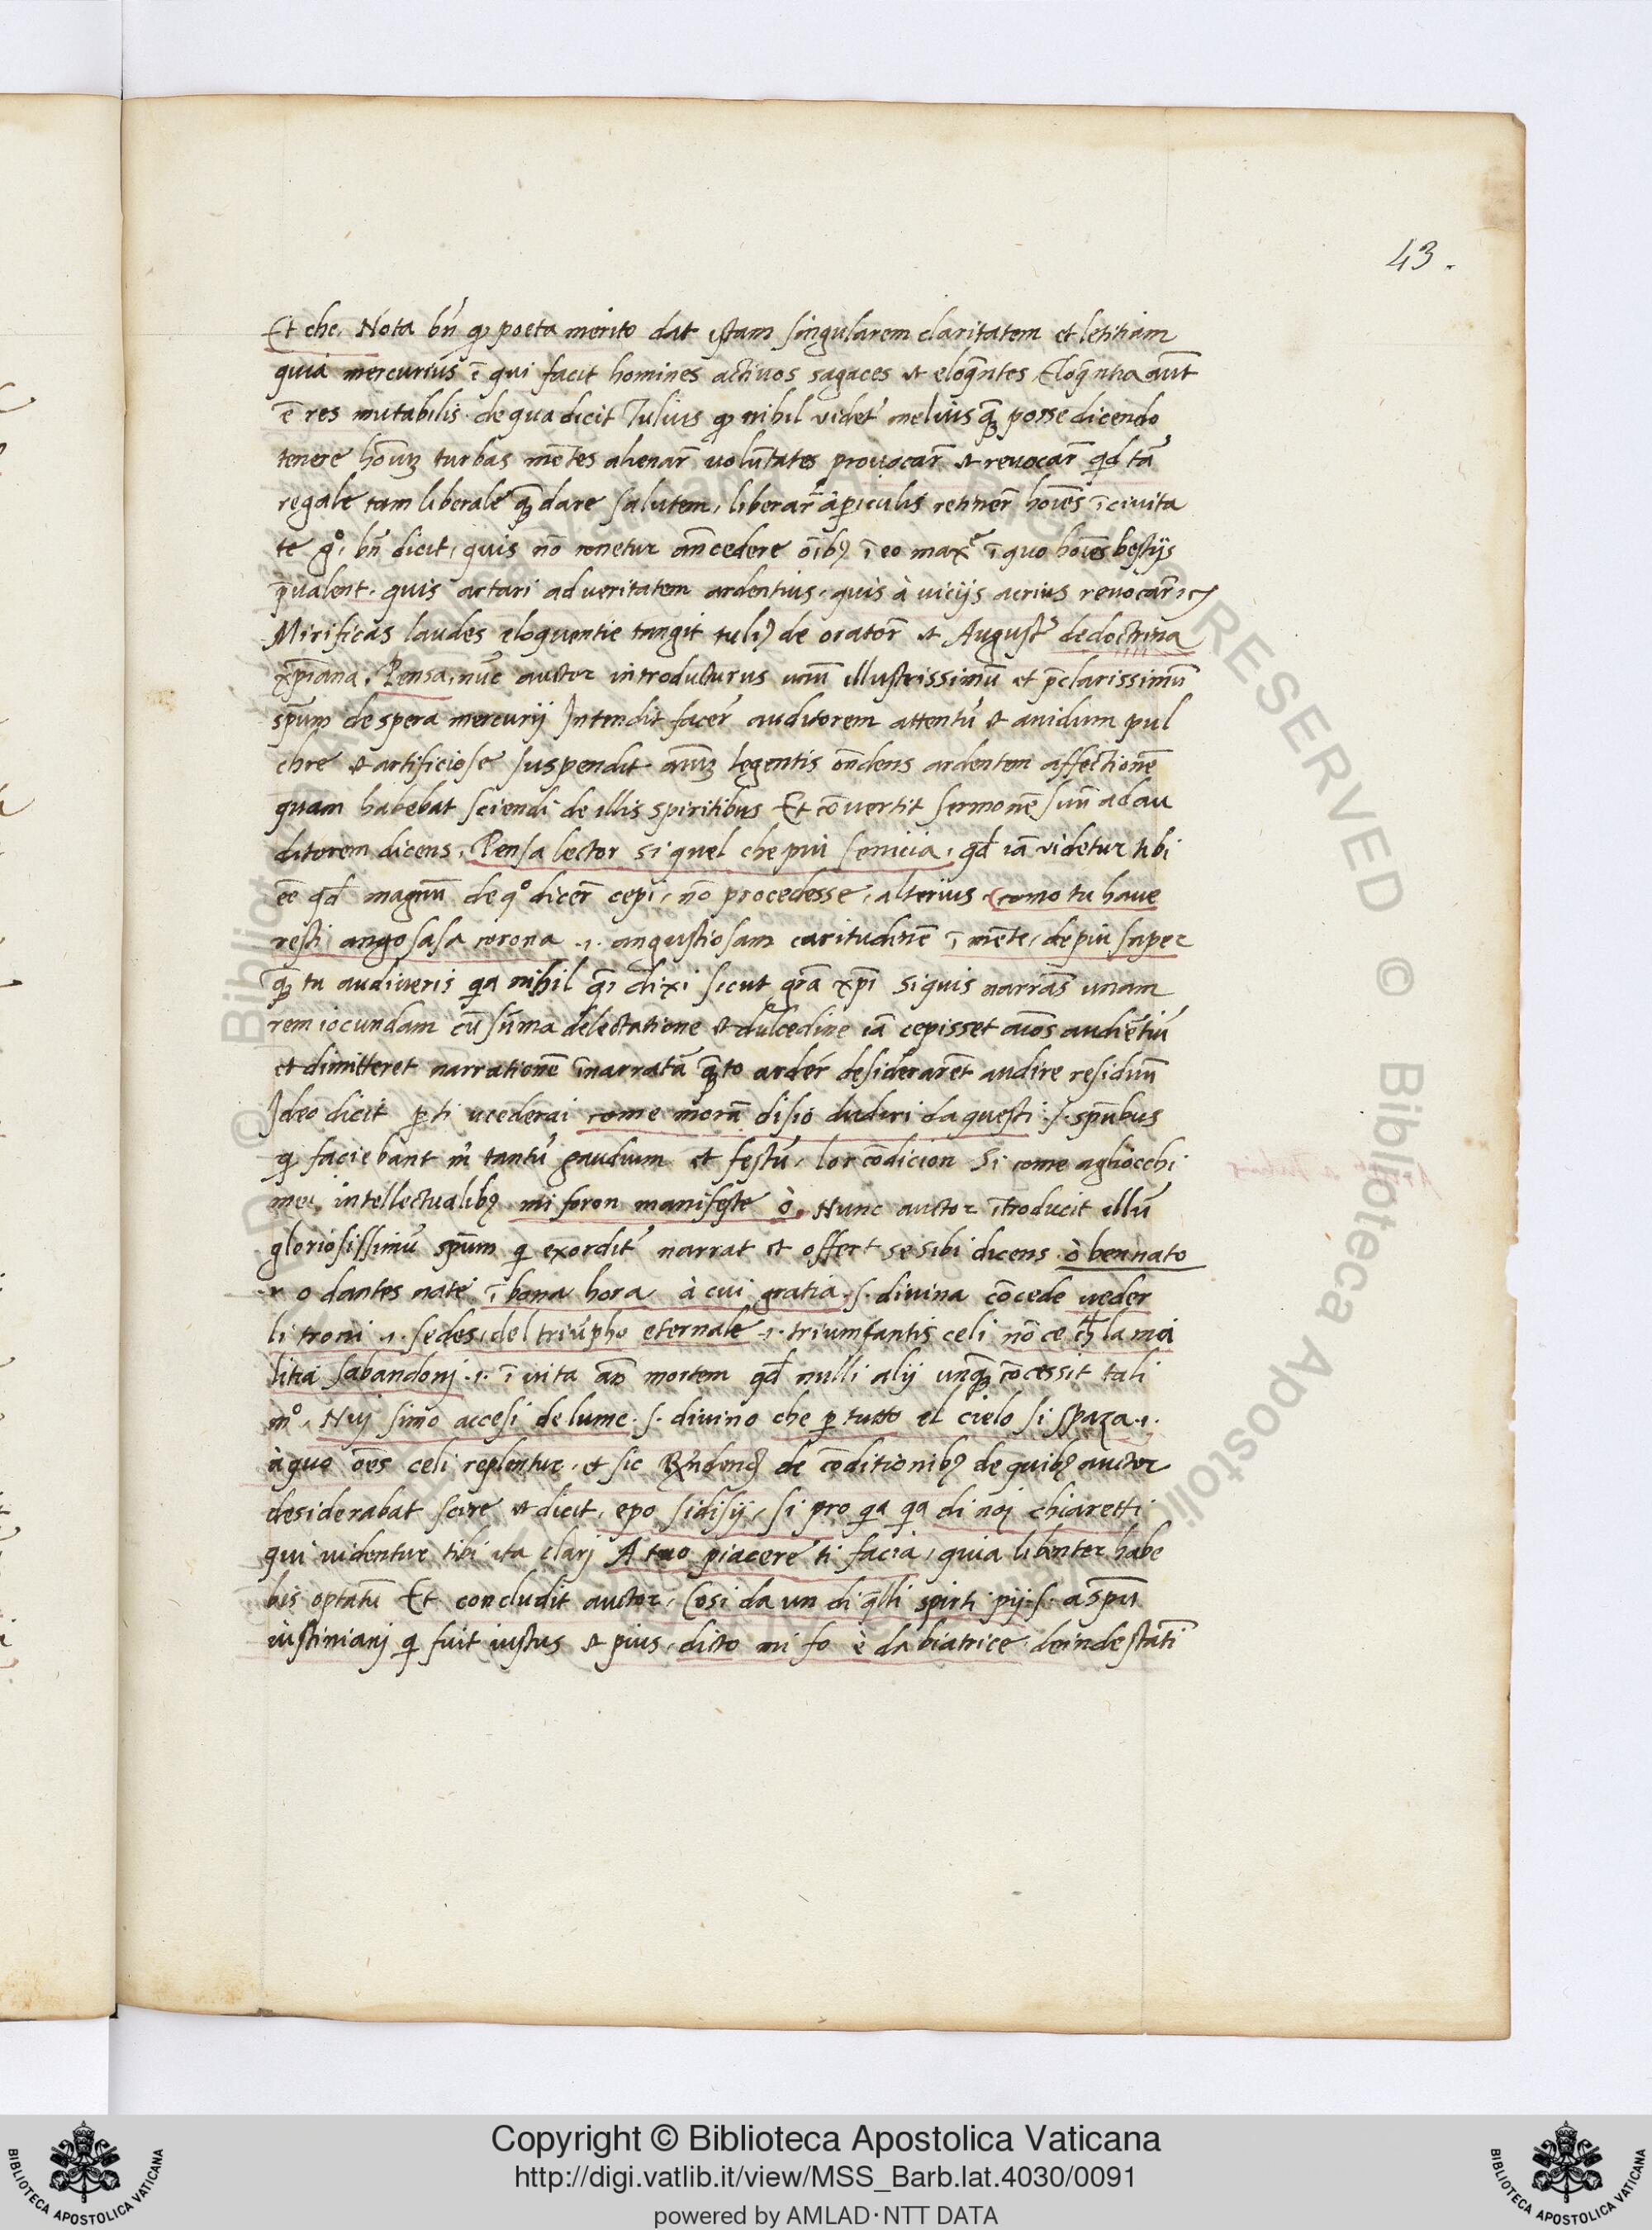 43.
Et che. Nota bn̄ qꝫ poeta merito dat istam singularem claritatem et letitiam
quia mercurius ē qui facit homines activos sagaces et eloq̄ntes, Eloq̄ntia aūt
ē res mutabilis. de qua dicit Tulius qꝫ nihil videt' melius qꝫ̄ posse dicendo
tenere hoīuꝫ turbas mētes alienar̄ volūtates provocar̄ et revocar̄ qd tā
regale tam liberale qꝫ̄ dare salutem, liberar̄ à ꝑiculis retiner̄ hoīes ī civita
te gͦ. bn̄ dicit, quis nō conetur an̄cedere oībꝫ ī eo maxe ī quo hoīes bestijs
p̄valent. quis artari ad veritatem ardentius, quis à vicijs acrius revocar̄
Mirificas laudes eloquentie tangit tuliꝫ de orator̄ et Augustꝰ de doctrina
xp̄iana. Pensa, nūc auctor introducturus unū illustrissimū et p̄clarissimū
sp̄um de spera mercurij Intendit facer̄ auditorem attentū et avidum pul
chre et artificiose suspendit aīuꝫ legentis on̄dens ardentem affectionē
quam habebat sciendi de illis spiritibus Et cōvertit sermonē suū ad au
ditorem dicens. Pensa lector si quel che piu senicia, qd iā videtur tibi
eē qd magnū de qͦ dicer̄ cepi, nō procedesse, alterius. como tu have
resti angosasa corona .i. angustiosam caritudinē ī mēte, de piu saper
qꝫ̄ tu audiveris qa nihil qī dixi sicut gr̄a xp̄i si quis narrās unam
rem iocundam cū sūma delectatione et dulcedine iā cepisset aīos audiētiū
et dimitteret narrationē īnarratā qꝫ̄to arder̄ desiderarēt audire residuū
Ideo dicit ꝑ ti vederai come morā disio dudiri da questi .s. spūbus
q faciebant m̄ tantū gaudium et festū, lor cōdicion Si come agliocchi
mei, intellectualibꝫ mi foron manifeste ò, Nunc auctor ītroducit illū
gloriosissimū sp̄um q exordit' narrat et offert se sibi dicens ò bennato
.i. o dantes nate ī bona hora à cui gratia .s. divina cōcede veder
li troni .i. sedes, del triūpho eternale .i. triumfantis celi nō ce ch̄ la moi
litia sabandonj .i. ī vita an̄ mortem qd nulli alij unqꝫ̄ cōcessit tali
mͦ. Nuj simo accesi de lume .s. divino che ꝑ tutto el cielo si spaza .i.
à quo oēs celi replentur, et sic de cōditionibꝫ de quibꝫ auctor
desiderabat scire et dicit, epo sidisij, si pro qa qa di noj chiaretti
qui videntur tibi ita clarj A tuo piacere ti sacia, quia libenter habe
bis optatū Et concludit auctor, Cosi da un di q̄lli spirti pij .s. a sp̄u
iustinianj q fuit iustus et pius, dicto mi fo è da biatrice deinde statī
Copyright © Biblioteca Apostolica Vaticana
http://digi.vatlib.it/view/MSS_Barb.lat.4030/0091
powered by AMLAD·NTT DATA
BIBLIOTECA APOSTOLICA VATICANA
BIBLIOTECA APOSTOLICA VATICANA